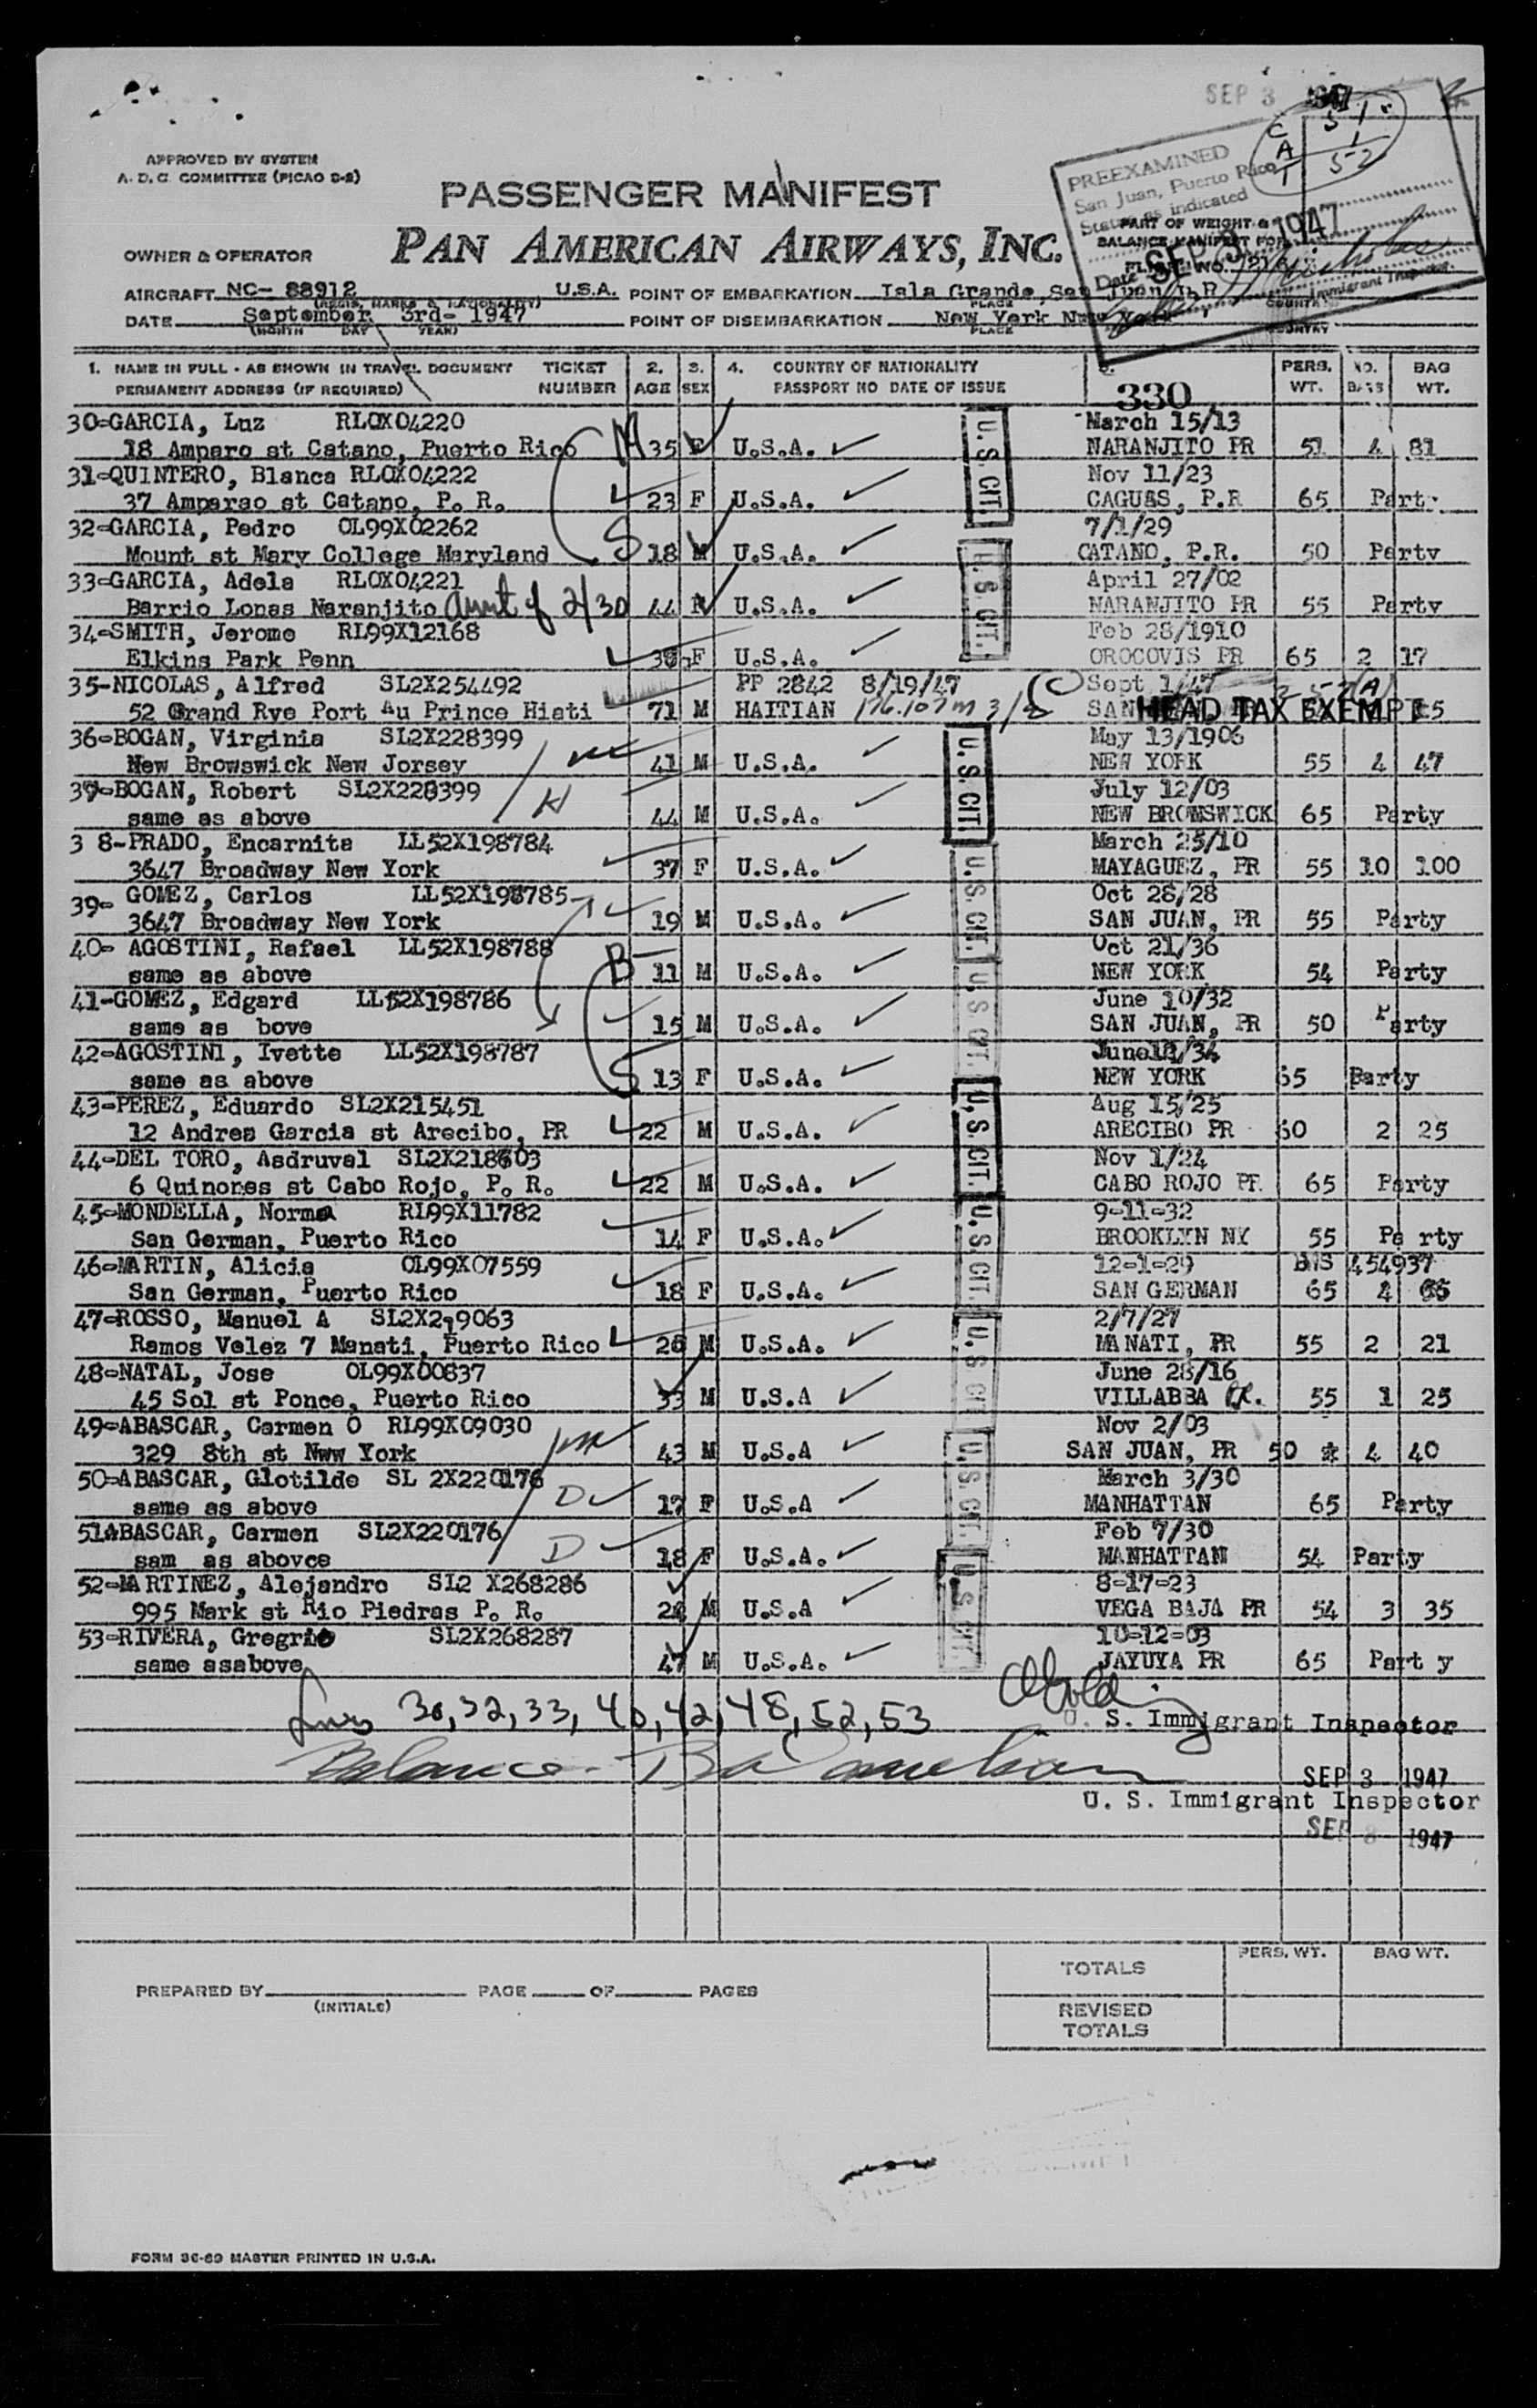 SEP 3 1947
C 51
A 1
T 52
APPROVED BY SYSTEM
A. D. C. COMMITTEE (PICAO S-2)
PREEXAMINED
San Juan, Puerto Rico
Status as indicated
Date SEP 3 1947
Immigrant Inspector.
PASSENGER MANIFEST
PART OF WEIGHT &
BALANCE MANIFEST FOR
FLIGHT NO.
OWNER & OPERATOR PAN AMERICAN AIRWAYS, INC.
AIRCRAFT NC- 88912 U.S.A. POINT OF EMBARKATION Isla Grande, San Juan P.R
(REGIS. MARKS & NATIONALITY) PLACE COUNTRY
DATE September 3rd- 1947 POINT OF DISEMBARKATION New York New York
(MONTH DAY YEAR) PLACE COUNTRY
1. NAME IN FULL - AS SHOWN IN TRAVEL DOCUMENT TICKET 2. 3. 4. COUNTRY OF NATIONALITY 5. PERS. NO. BAG
PERMANENT ADDRESS (IF REQUIRED) NUMBER AGE SEX PASSPORT NO DATE OF ISSUE 330 WT. BAGS WT.
30-GARCIA, Luz RLOX04220 March 15/13
18 Amparo st Catano, Puerto Rico M 35 F U.S.A. NARANJITO PR 51 4 81
31-QUINTERO, Blanca RLOX04222 Nov 11/23
37 Amparao st Catano, P. R. 23 F U.S.A. CAGUAS, P.R 65 Party
32-GARCIA, Pedro OL99X02262 7/1/29
Mount st Mary College Maryland S 18 M U.S.A. CATANO, P.R. 50 Party
33-GARCIA, Adela RLOX04221 April 27/02
Barrio Lonas Naranjito aunt of 2/30 44 U.S.A. NARANJITO PR 55 Party
34-SMITH, Jerome RL99X12168 Feb 28/1910
Elkins Park Penn F U.S.A. OROCOVIS PR 65 2 17
35-NICOLAS, Alfred SL2X254492 PP 2842 8/19/47 Sept 1/47
52 Grand Rve Port Au Prince Hiati 71 M HAITIAN SAN HEAD TAX EXEMPT
36-BOGAN, Virginia SL2X228399 May 13/1906
New Browswick New Jorsey 41 M U.S.A. NEW YORK 55 4 47
37-BOGAN, Robert SL2X228399 July 12/03
same as above H 44 M U.S.A. NEW BROWSWICK 65 Party
3 8-PRADO, Encarnita LL52X198784 March 25/10
3647 Broadway New York 37 F U.S.A. MAYAGUEZ, PR 55 10 100
39- GOMEZ, Carlos LL52X198785 Oct 28/28
3647 Broadway New York 19 M U.S.A. SAN JUAN, PR 55 Party
40- AGOSTINI, Rafael LL52X198788 Oct 21/36
same as above B 11 M U.S.A. NEW YORK 54 Party
41-GOMEZ, Edgard LL52X198786 June 10/32
same as bove 15 M U.S.A. SAN JUAN, PR 50 Party
42-AGOSTINI, Ivette LL52X198787 June 34
same as above S 13 F U.S.A. NEW YORK 65 Party
43-PEREZ, Eduardo SL2X215451 Aug 15/25
12 Andres Garcia st Arecibo, PR 22 M U.S.A. ARECIBO PR 60 2 25
44-DEL TORO, Asdruval SL2X218603 Nov 1/24
6 Quinones st Cabo Rojo, P. R. 22 M U.S.A. CABO ROJO PR 65 Party
45-MONDELLA, Norma RL99X11782 9-11-32
San German, Puerto Rico 14 F U.S.A. BROOKLYN NY 55 Pa rty
46-MARTIN, Alicia OL99X07559 12-1-29 454937
San German, Puerto Rico 18 F U.S.A. SAN GERMAN 65 4
47-ROSSO, Manuel A 2/7/27
Ramos Velez 7 Manati, Puerto Rico 20 M U.S.A. MANATI, PR 55 2 21
48-NATAL, Jose OL99X00837 June 28/16
45 Sol st Ponce, Puerto Rico 33 M U.S.A VILLABBA P.R. 55 1 25
49-ABASCAR, Carmen O RL99X09030 Nov 2/03
329 8th st Nww York 43 M U.S.A SAN JUAN, PR 50 4 40
50-ABASCAR, Glotilde SL 2X220176 March 3/30
same as above D 17 F U.S.A MANHATTAN 65 Party
51ABASCAR, Carmen SL2X220176 Feb 7/30
sam as abovce D 18 F U.S.A. MANHATTAN 54 Party
52-MARTINEZ, Alejandro SL2 X268286 8-17-23
995 Mark st Rio Piedras P. R. M U.S.A VEGA BAJA PR 54 3 35
53-RIVERA, Gregrio SL2X268287 10-12-03
same asabove 47 M U.S.A. JAYUYA PR 65 Part y
U.S. CIT.
U.S. CIT.
U.S. CIT.
U.S. CIT.
U.S. CIT.
U.S. CIT.
U.S. CIT.
U.S. CIT.
U.S. CIT.
U.S. CIT.
Lines 30, 32, 33, 40, 42, 48, 52, 53
U. S. Immigrant Inspector
Balance
SEP 3 1947
U. S. Immigrant Inspector
SEP 8 1947
TOTALS PERS. WT. BAG WT.
PREPARED BY PAGE OF PAGES
(INITIALS)
REVISED
TOTALS
FORM 36-69 MASTER PRINTED IN U.S.A.